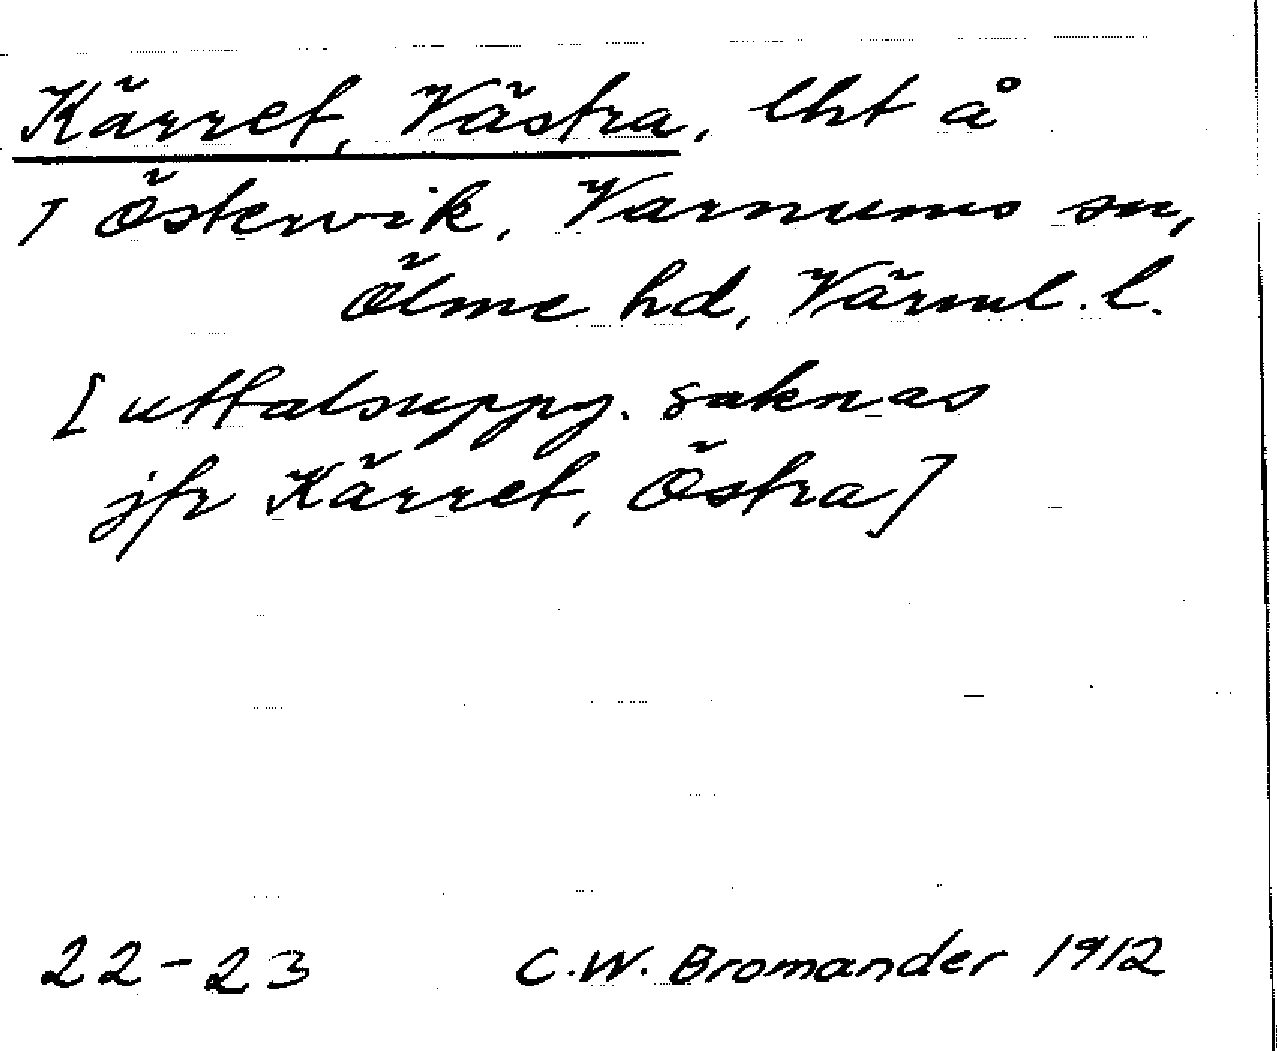 Kärret, Västra, lht å
1 Östervik, Varnums sn,
Ölme hd, Värml. l.
[uttalsuppg. saknas
jfr Kärret, Östra]
22-23 C.W. Bromander 1912